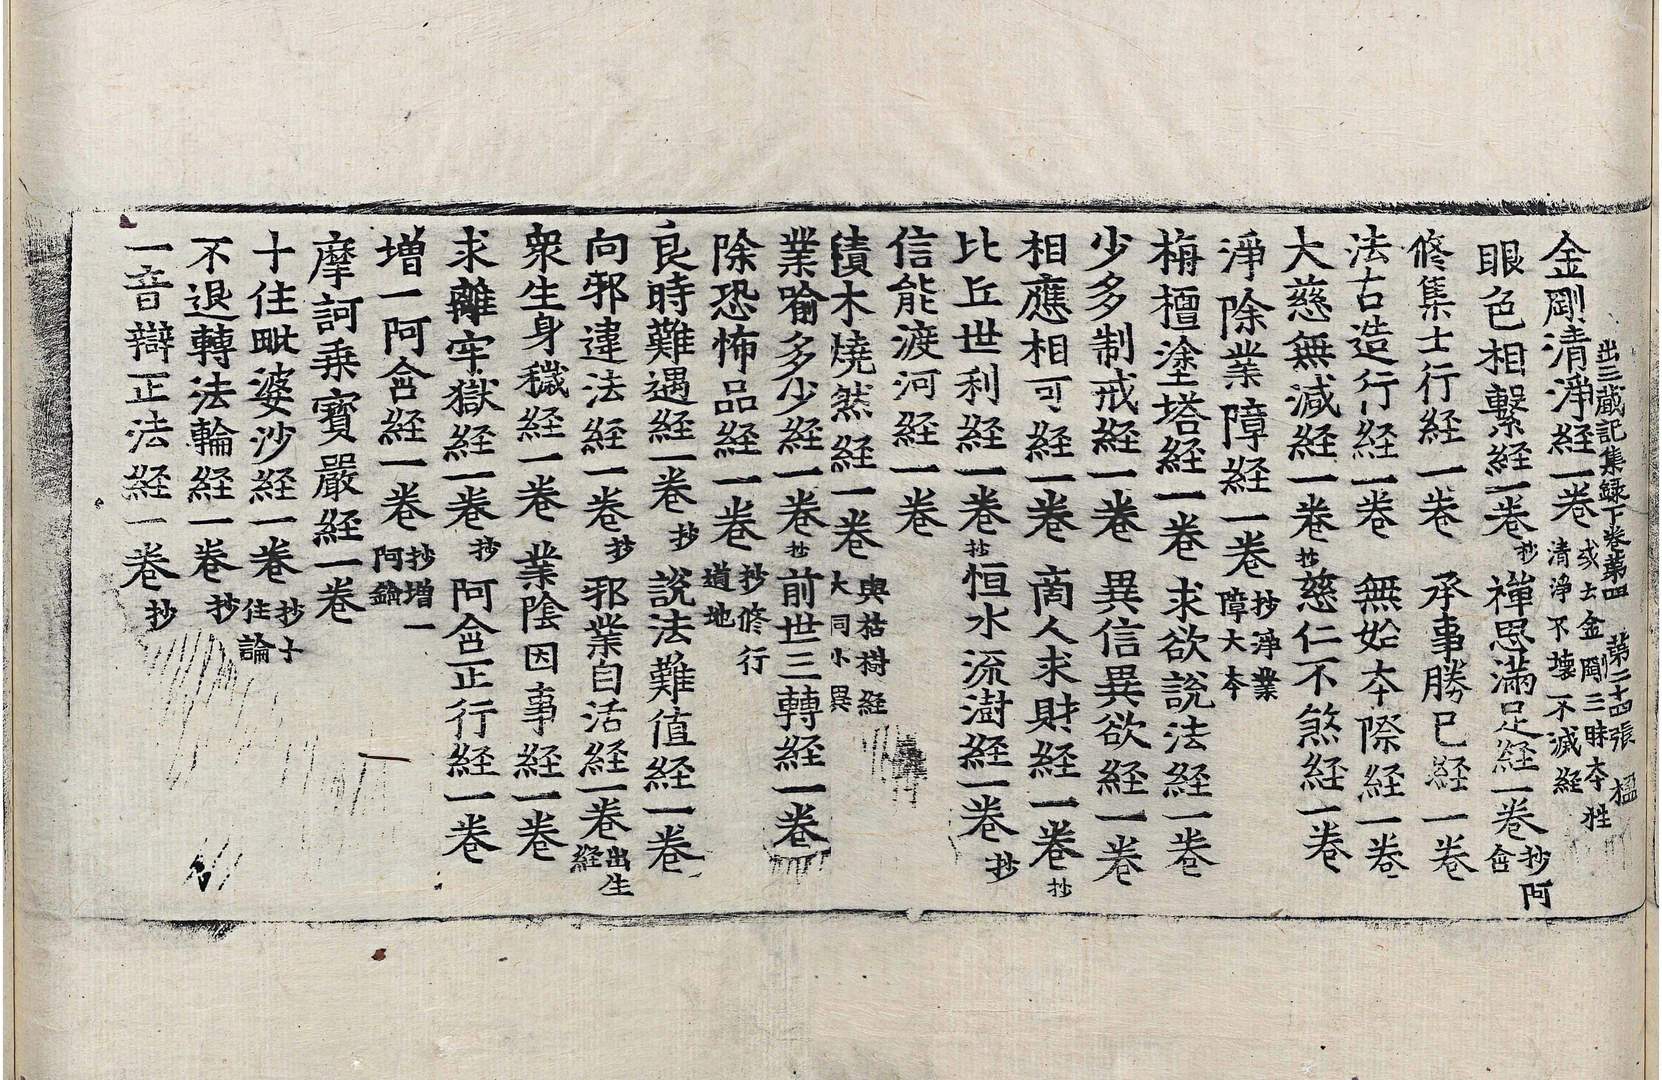 出三蔵記集録下卷第四 第二十四張 楹
金剛清淨経一卷 或云金剛三昧本性清淨不壞不滅経
眼色相繫経一卷抄 禪思滿足経一卷抄阿含
修集士行経一卷 承事勝已経一卷
法古造行経一卷 無始本際経一卷
大慈無減経一卷抄 慈仁不煞経一卷
淨除業障経一卷 抄淨業障大本
栴檀塗塔経一卷 求欲說法経一卷
少多制戒経一卷 異信異欲経一卷
相應相可経一卷 啇人求財経一卷抄
比丘世利経一卷抄 恒水流澍経一卷抄
信能渡河経一卷
積木燒然経一卷 與枯樹経大同小異
業喻多少経一卷抄 前世三轉経一卷
除恐怖品経一卷 抄修行道地
良時難遇経一卷抄 說法難值経一卷
向邪違法経一卷抄 邪業自活経一卷出生経
衆生身穢経一卷 業陰因事経一卷
求離牢獄経一卷抄 阿含正行経一卷
増一阿含経一卷 抄増一阿鋡
摩訶乗寶嚴経一卷
十住毗婆沙経一卷 抄十住論
不退轉法輪経一卷抄
一音辯正法経一卷抄